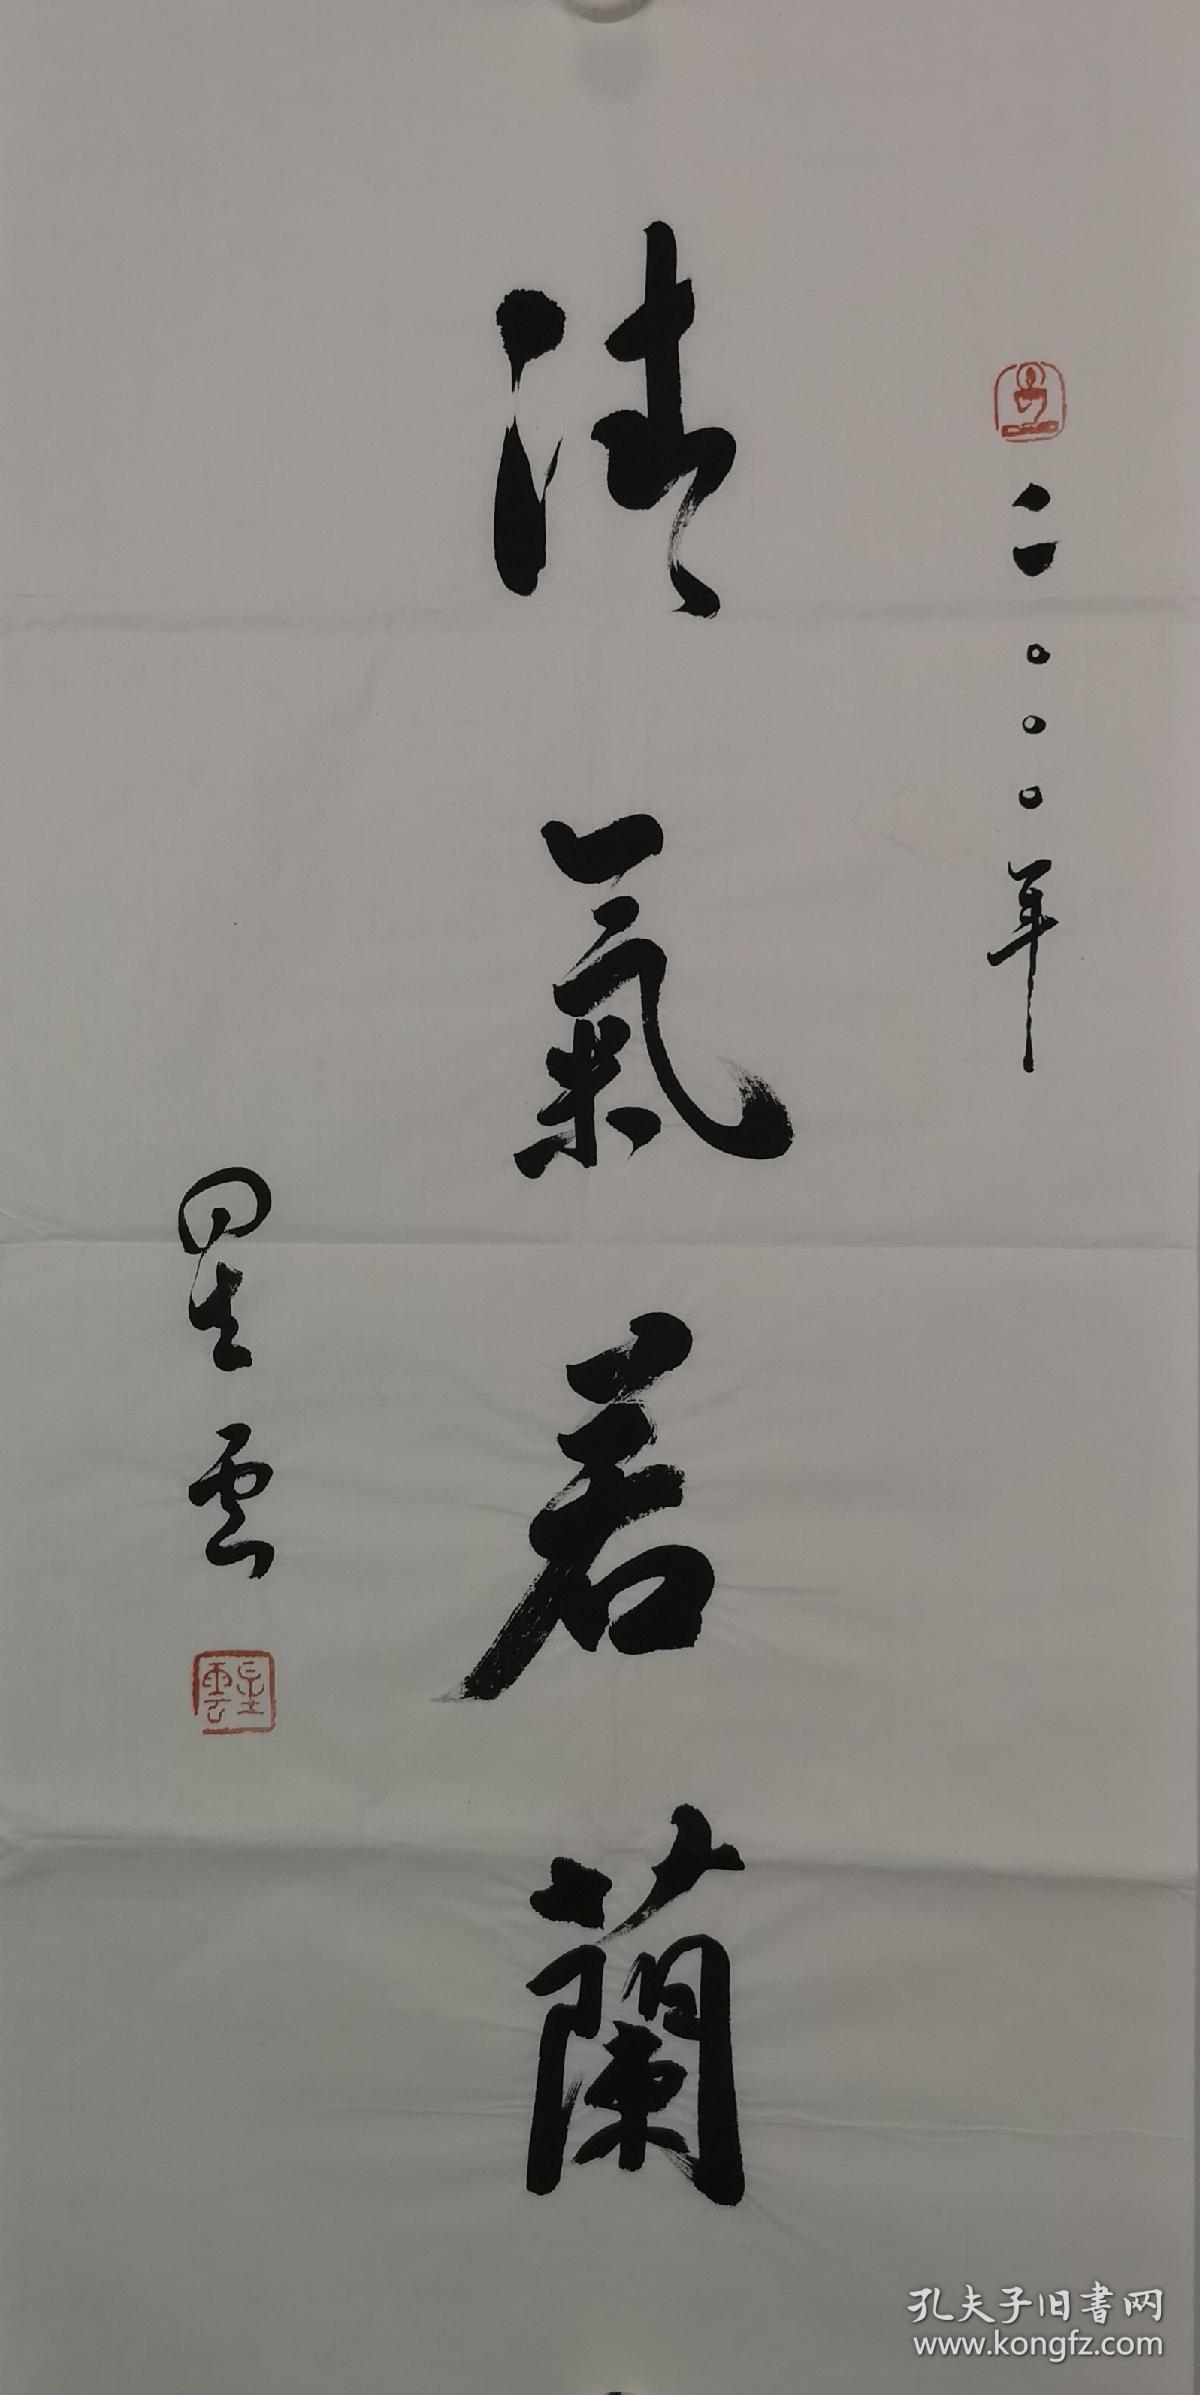 二〇〇〇年
清氣若蘭
星雲
星雲
孔夫子旧書网
www.kongfz.com